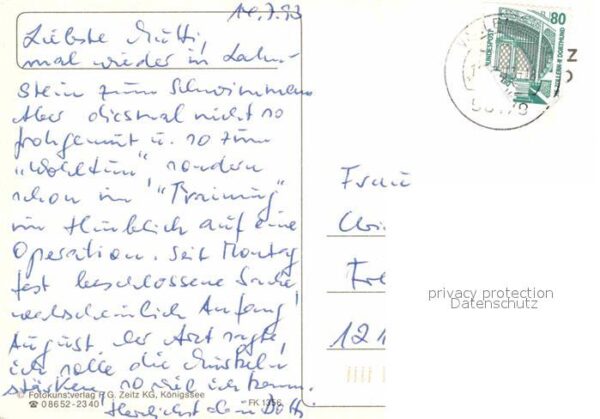 14.7.93
Liebste Mutti,
mal wieder in Lahn-
stein zum Schwimmen
Aber diesmal nicht so
frohgemut u. so zum
"Wohltun" sondern
schon im "Training"
im Hinblick auf eine
Operation. Seit Montag
fest beschlossene Sache
wahrscheinlich Anfang
August. Der Arzt sagte,
ich solle die Muskeln
stärken, so viel ich kann.
Herzlichst dein Dotti
© Fotokunstverlag F.G. Zeitz KG, Königssee
☎ 08652-2340
FK 1356
Frau
80
DEUTSCHE BUNDESPOST
ZECHE ZOLLERN II DORTMUND
privacy protection
Datenschutz